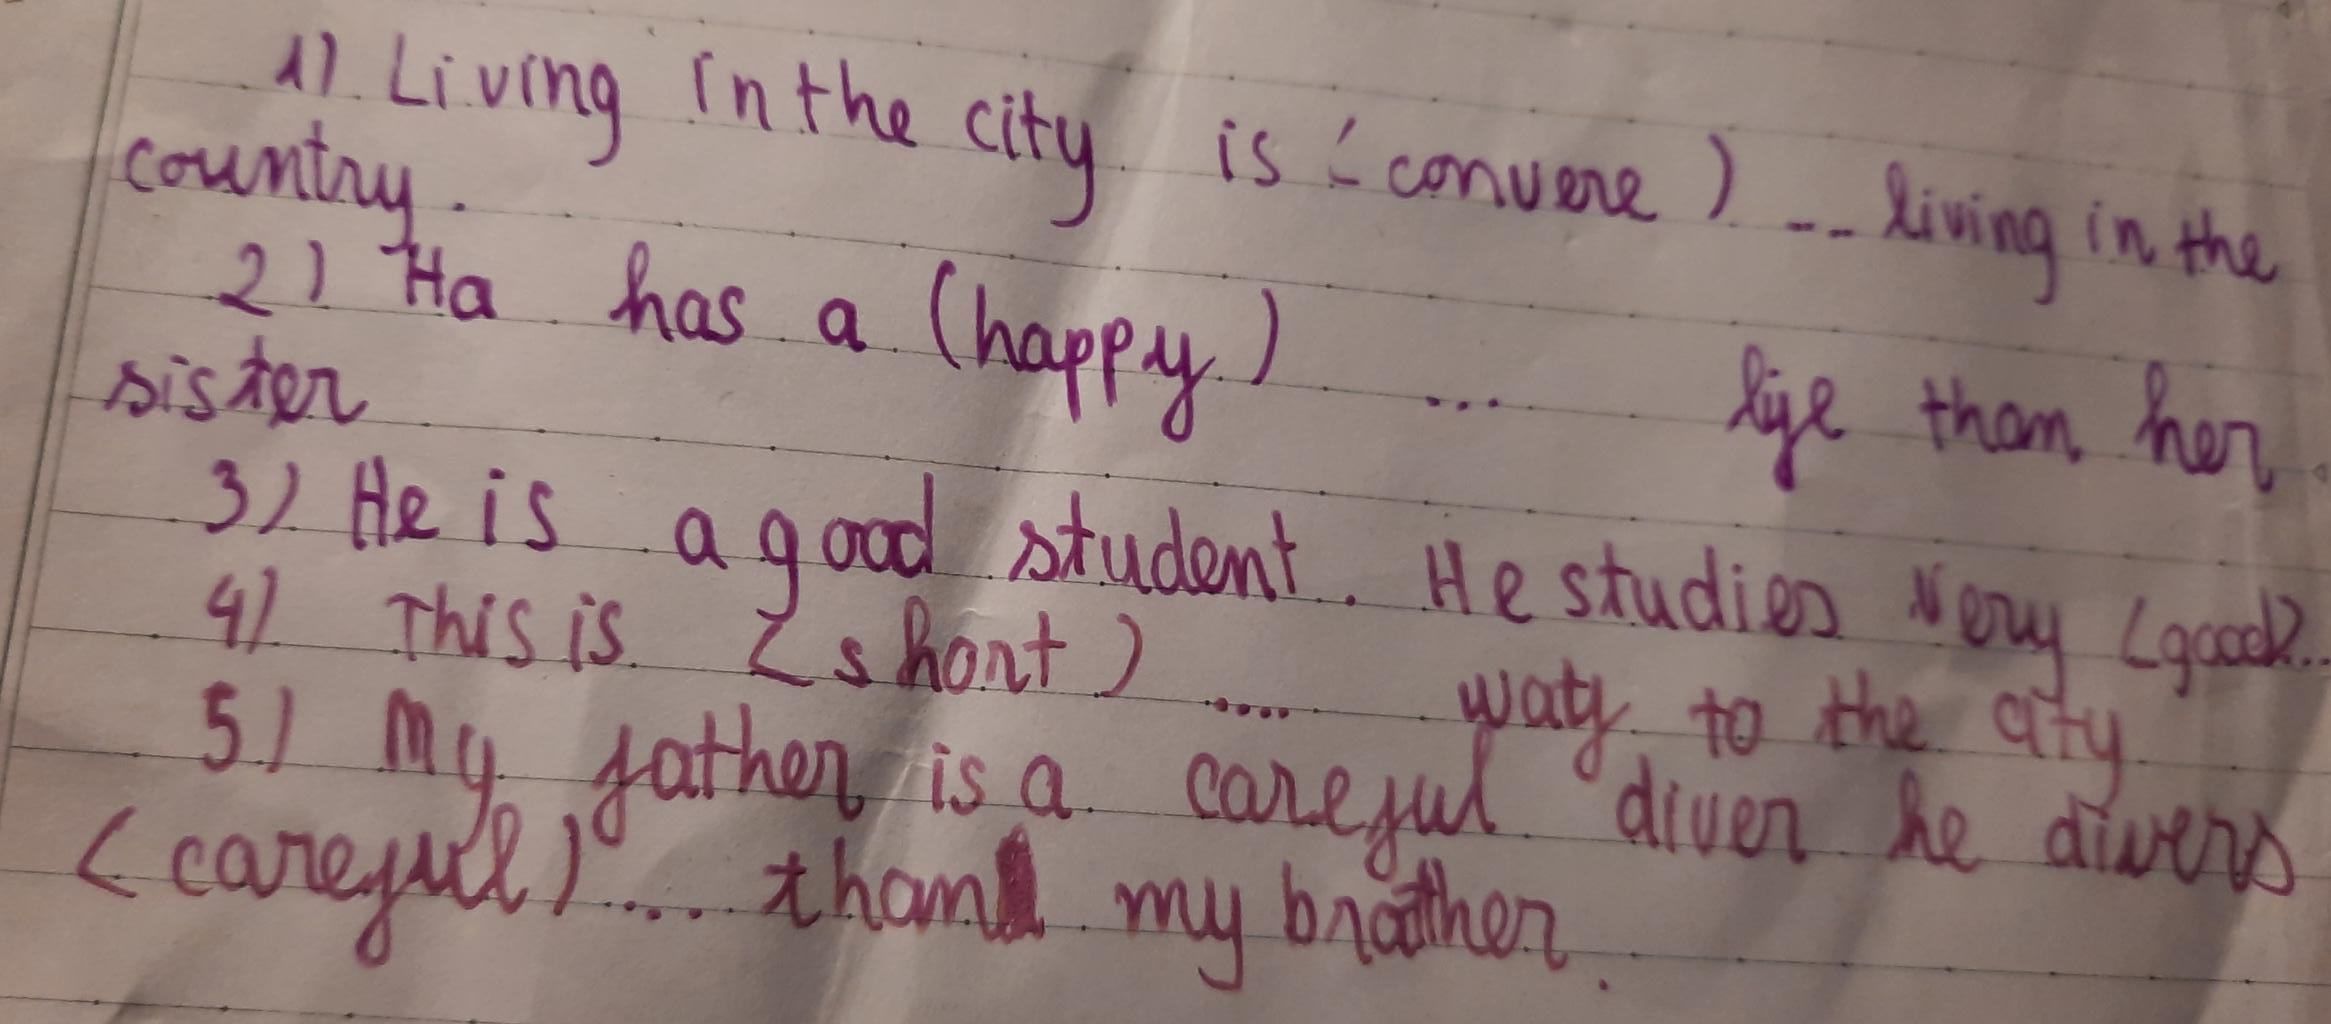 1) Living in the city is (convere) -- living in the
country.
2) Ha has a (happy) ... life than her
sister
3) He is a good student. He studies very (good)..
4) This is (short) .... waty to the city
5) My father is a careful diver he divers
(careful) .... than my broother.